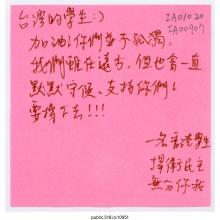 台灣的學生:)
IA01020
IA00907
加油!你們並不孤獨,
我們雖在遠方,但也會一直
默默守候、支持你們!
要撐下去!!!
一名香港學生
捍衛民主
無分你我
public.318.io/10951